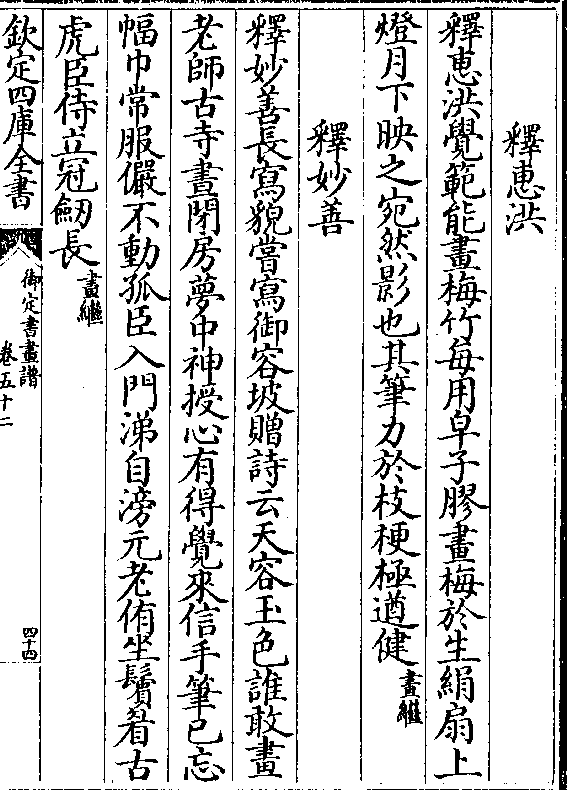 釋惠洪
釋惠洪覺範能畫梅竹每用皁子膠畫梅於生絹扇上
燈月下映之宛然影也其筆力於枝梗極遒健畫繼
釋妙善
釋妙善長寫貌嘗寫御容坡贈詩云天容玉色誰敢畫
老師古寺晝閉房夢中神授心有得覺來信手筆已忘
幅巾常服儼不動孤臣入門涕自滂元老侑坐鬚眉古
虎臣侍立冠劔長畫繼
欽定四庫全書
御定書畫譜
卷五十二
四十四